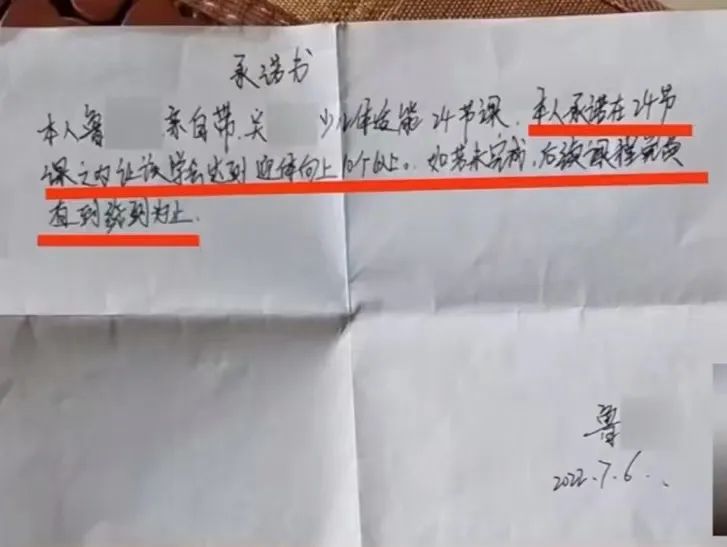 承诺书
本人鲁 亲自带吴 少儿体技能24节课,本人承诺在24节
课之内让该学会达到 引体向上10个以上。如若未完成,后续课程免费
直到练到为止.
鲁
2022.7.6..